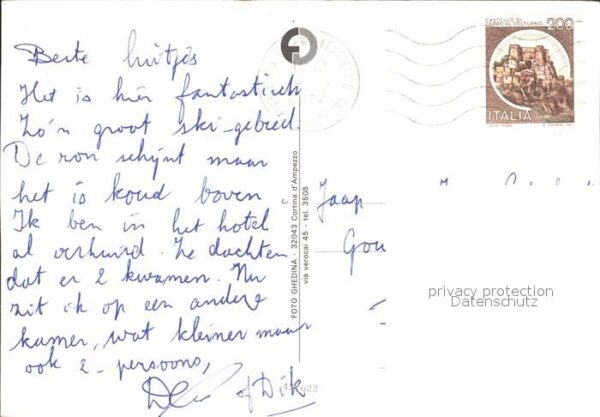 Beste
Het is hier fantastisch
Zo'n groot ski-gebied.
De zon schijnt maar
het is koud boven.
Ik ben in het hotel
al verhuisd. Ze dachten
dat er 2 kwamen. Nu
zit ik op een andere
kamer, wat kleiner maar
ook 2-persoons,
of Dik
FOTO GHEDINA - 32043 Cortina d'Ampezzo
via verocai 45 - tel. 3505
CASTELLO DI
CERRO AL VOLTURNO
200
ITALIA
Jaap
Gou
privacy protection
Datenschutz